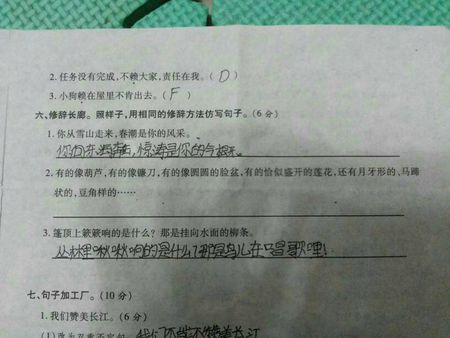 2. 任务没有完成,不赖大家,责任在我。( D )
3. 小狗赖在屋里不肯出去。( F )
六、修辞长廊。照样子,用相同的修辞方法仿写句子。(6 分)
1. 你从雪山走来,春潮是你的风采。
惊涛是你的气概。
2. 有的像葫芦,有的像镰刀,有的像圆圆的脸盆,有的恰似盛开的莲花,还有月牙形的、马蹄
状的,豆角样的……
3. 篷顶上簌簌响的是什么?那是挂向水面的柳条。
丛林里啾啾响的是什么?那是鸟儿在唱歌哩!
七、句子加工厂。(10 分)
1. 我们赞美长江。(6 分)
我们不能不赞美长江